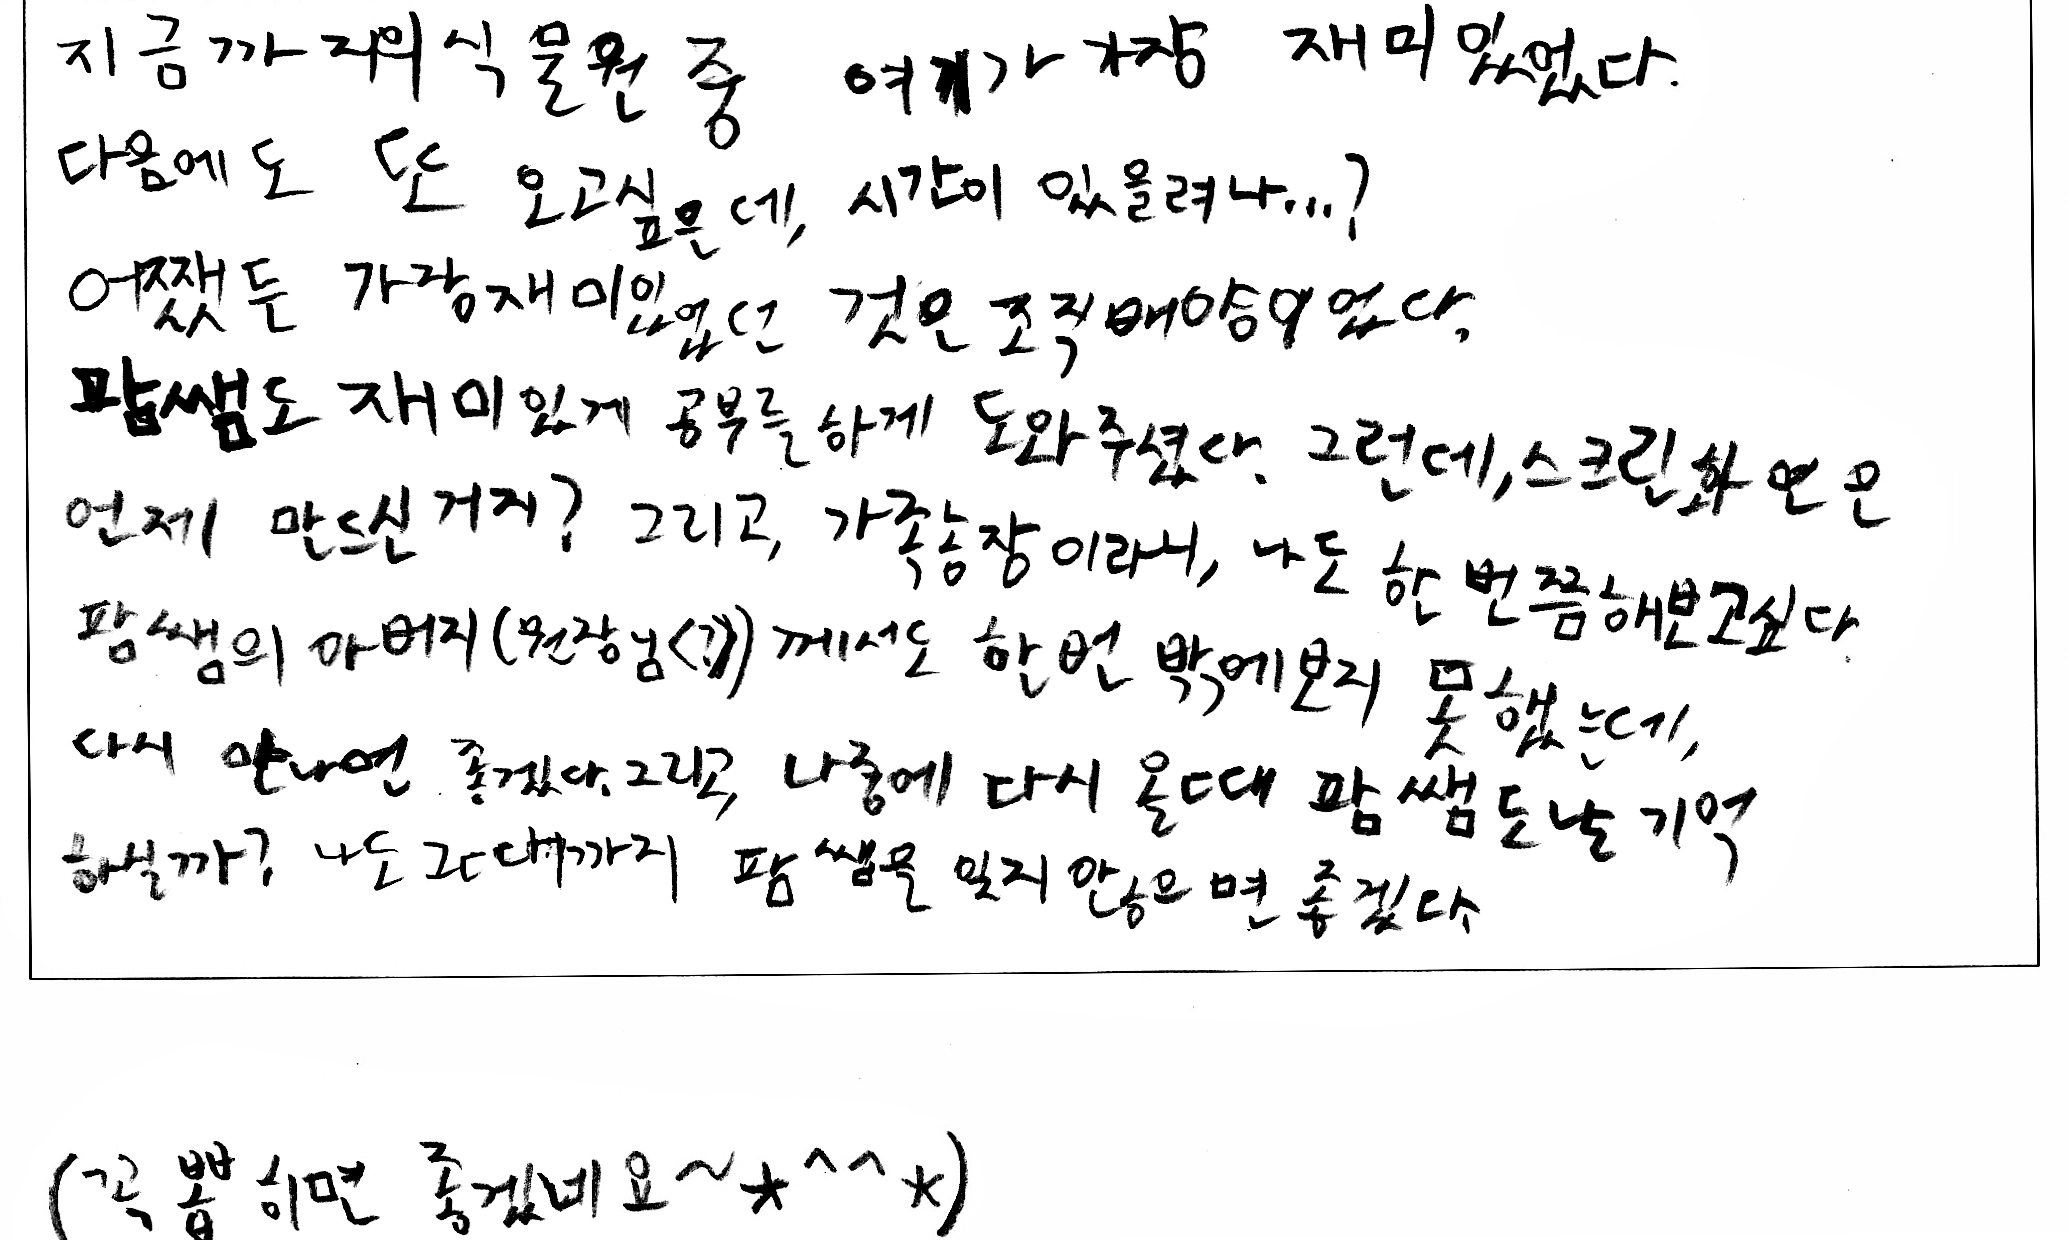 지금까지의 식물원 중 여기가 가장 재미있었다.
다음에도 또 오고싶은데, 시간이 있을려나...?
어쨌든 가장재미있었던 것은 조직배양이었다.
팜쌤도 재미있게 공부를하게 도와주셨다. 그런데,스크린화면은
언제 만드신거지? 그리고, 가족농장이라니, 나도 한번쯤해보고싶다.
팜쌤의 아버지(원장님<?>)께서도 한번 밖에보지 못했는데,
다시 만나면 좋겠다.그리고, 나중에 다시 올때 팜쌤도날 기억
하실까? 나도 그때까지 팜쌤을 잊지 않으면 좋겠다.
(꼭 뽑히면 좋겠네요~*^^*)